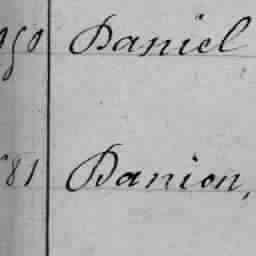 Daniel
81 Danion,